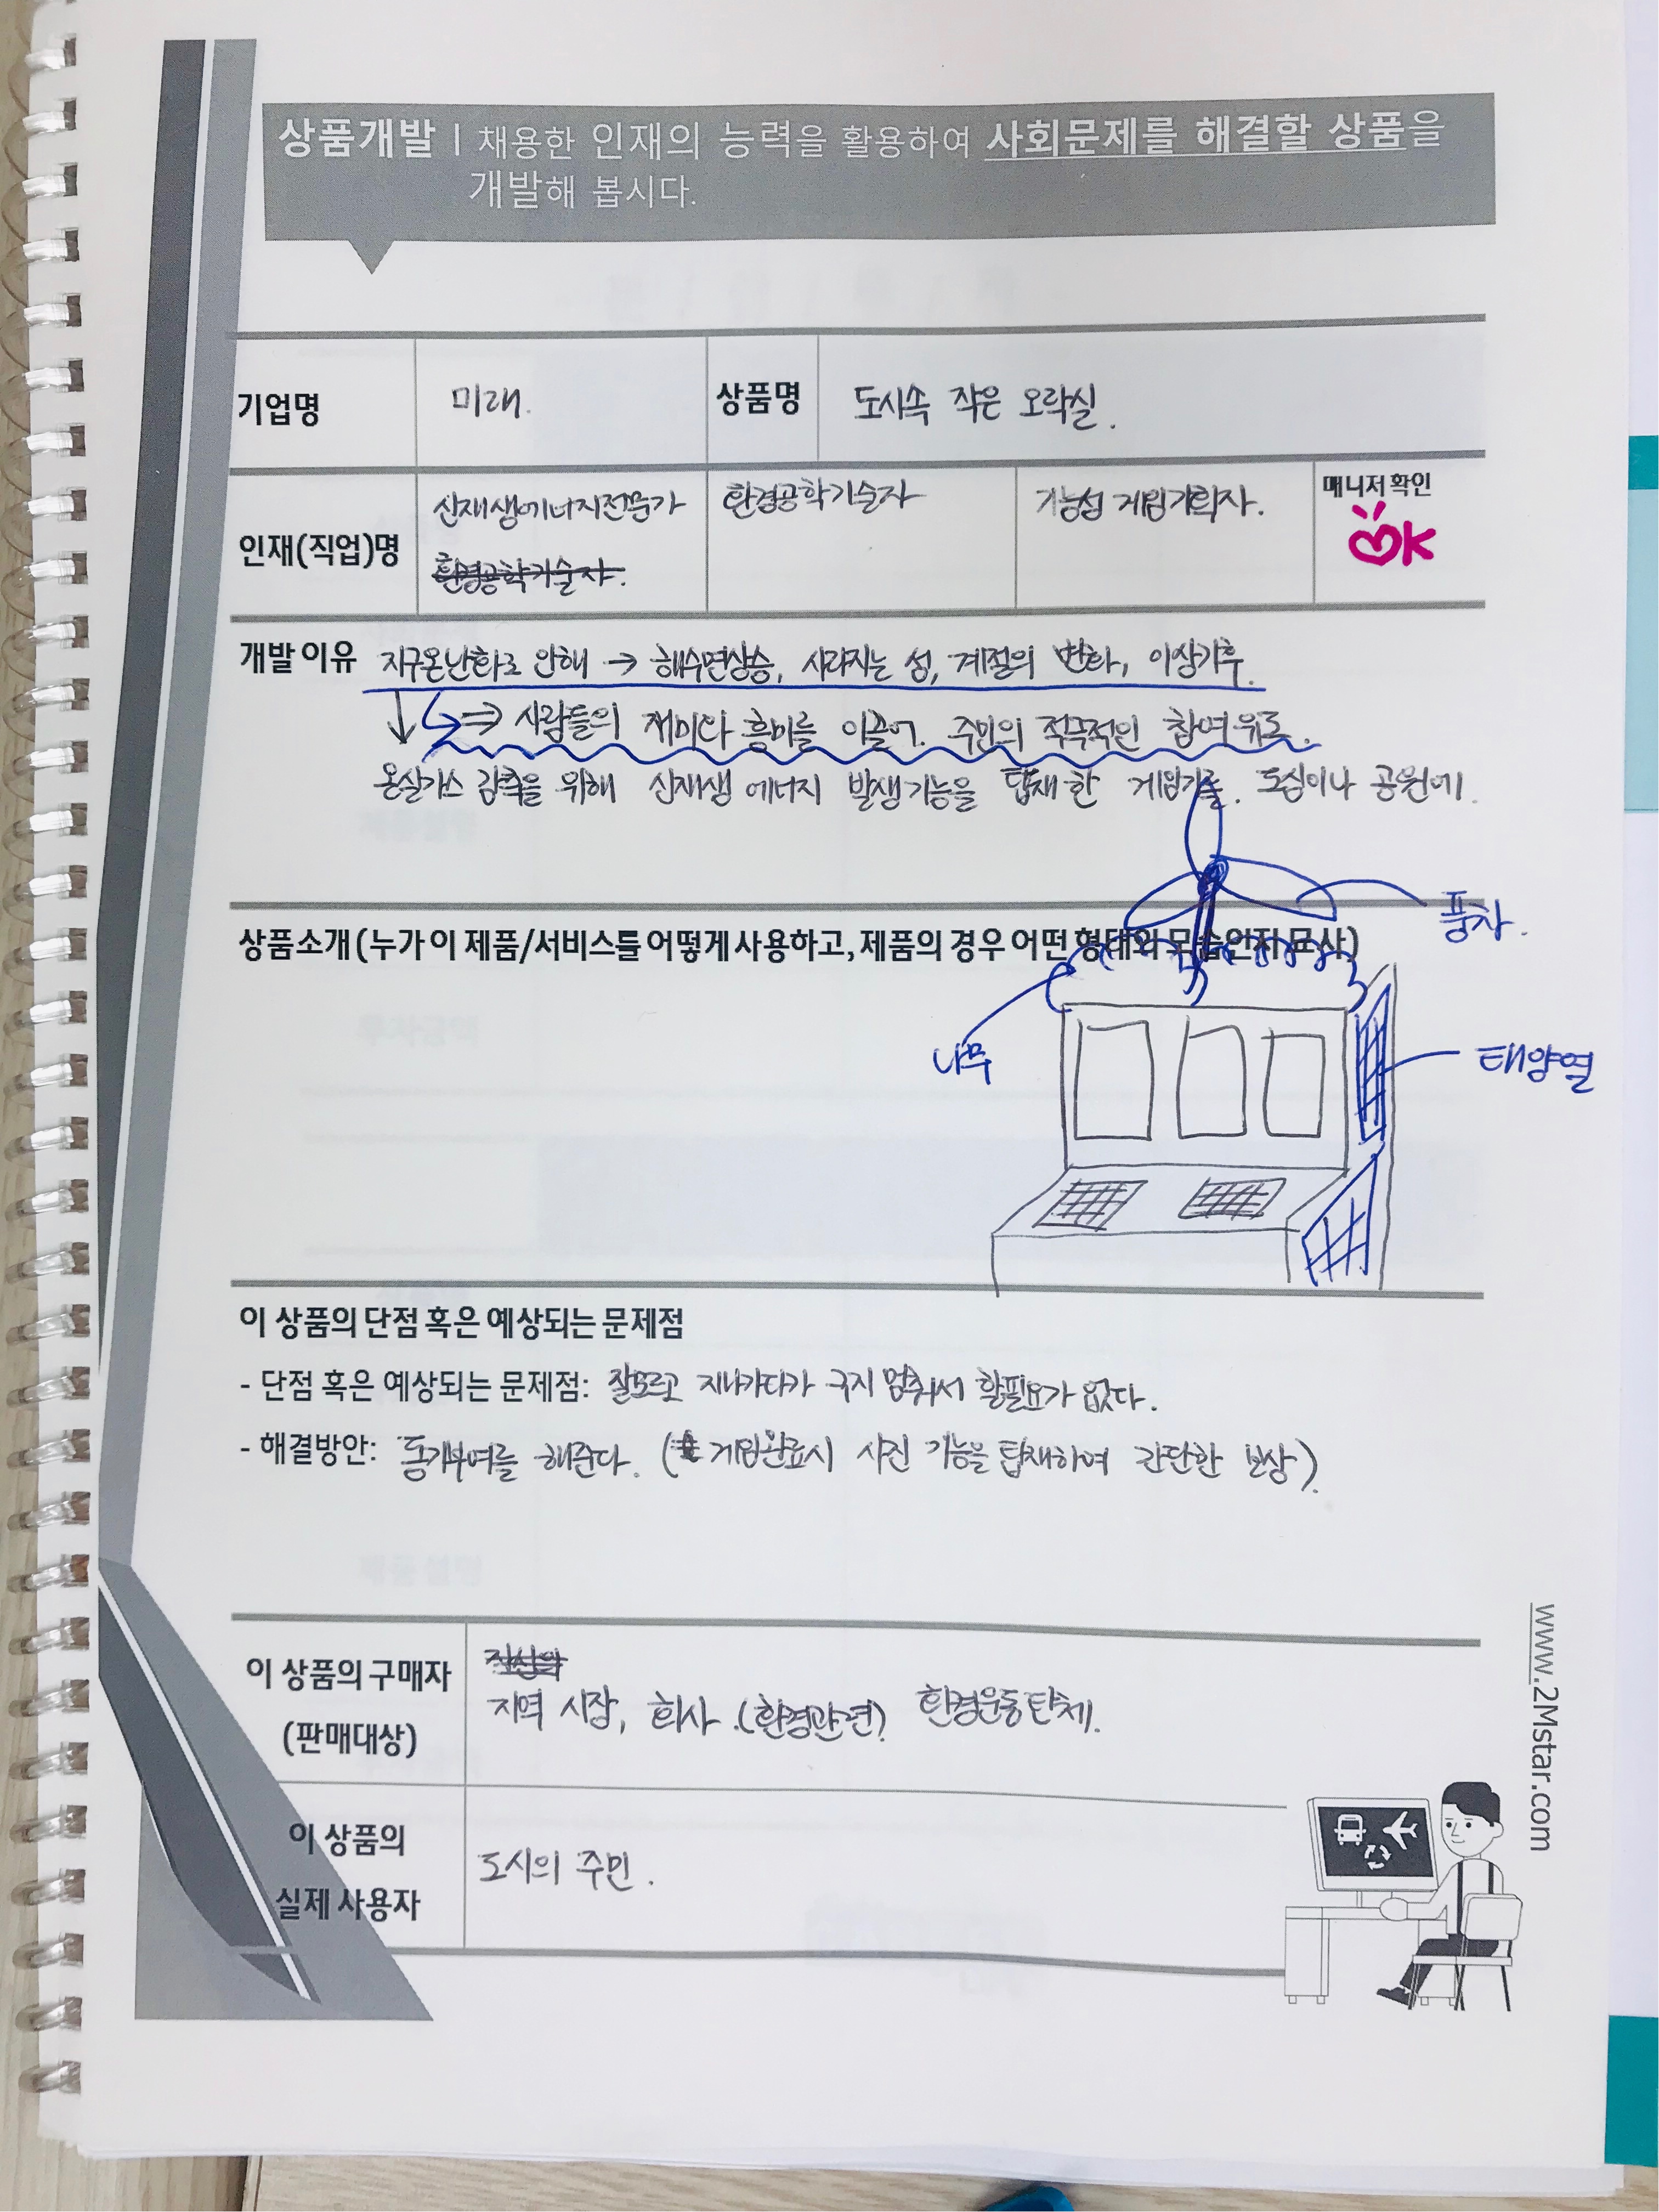 상품개발 | 채용한 인재의 능력을 활용하여 사회문제를 해결할 상품을
개발해 봅시다.
기업명 미래. 상품명 도시속 작은 오락실.
인재(직업)명
신재생에너지전문가
환경공학기술자.
환경공학기술자
기능성 게임기획자.
매니저 확인
OK
개발 이유 지구온난화로 인해 → 해수면상승, 사라지는 섬, 계절의 변화, 이상기후.
↓ ⇒ 사람들의 재미와 흥미를 이끌어. 주민의 적극적인 참여 유도.
온실가스 감축을 위해 신재생 에너지 발생기능을 탑재한 게임기를. 도심이나 공원에.
풍차.
상품소개 (누가 이 제품/서비스를 어떻게 사용하고, 제품의 경우 어떤 형태와 모습인지 묘사)
나무
태양열
이 상품의 단점 혹은 예상되는 문제점
- 단점 혹은 예상되는 문제점: 잘모르고 지나가다가 구지 멈춰서 할필요가 없다.
- 해결방안: 동기부여를 해준다. (게임완료시 사진 기능을 탑재하여 간단한 보상).
이 상품의 구매자
(판매대상)
지역 시장, 회사.(환경관련) 환경운동단체.
이 상품의
실제 사용자
도시의 주민.
www.2Mstar.com